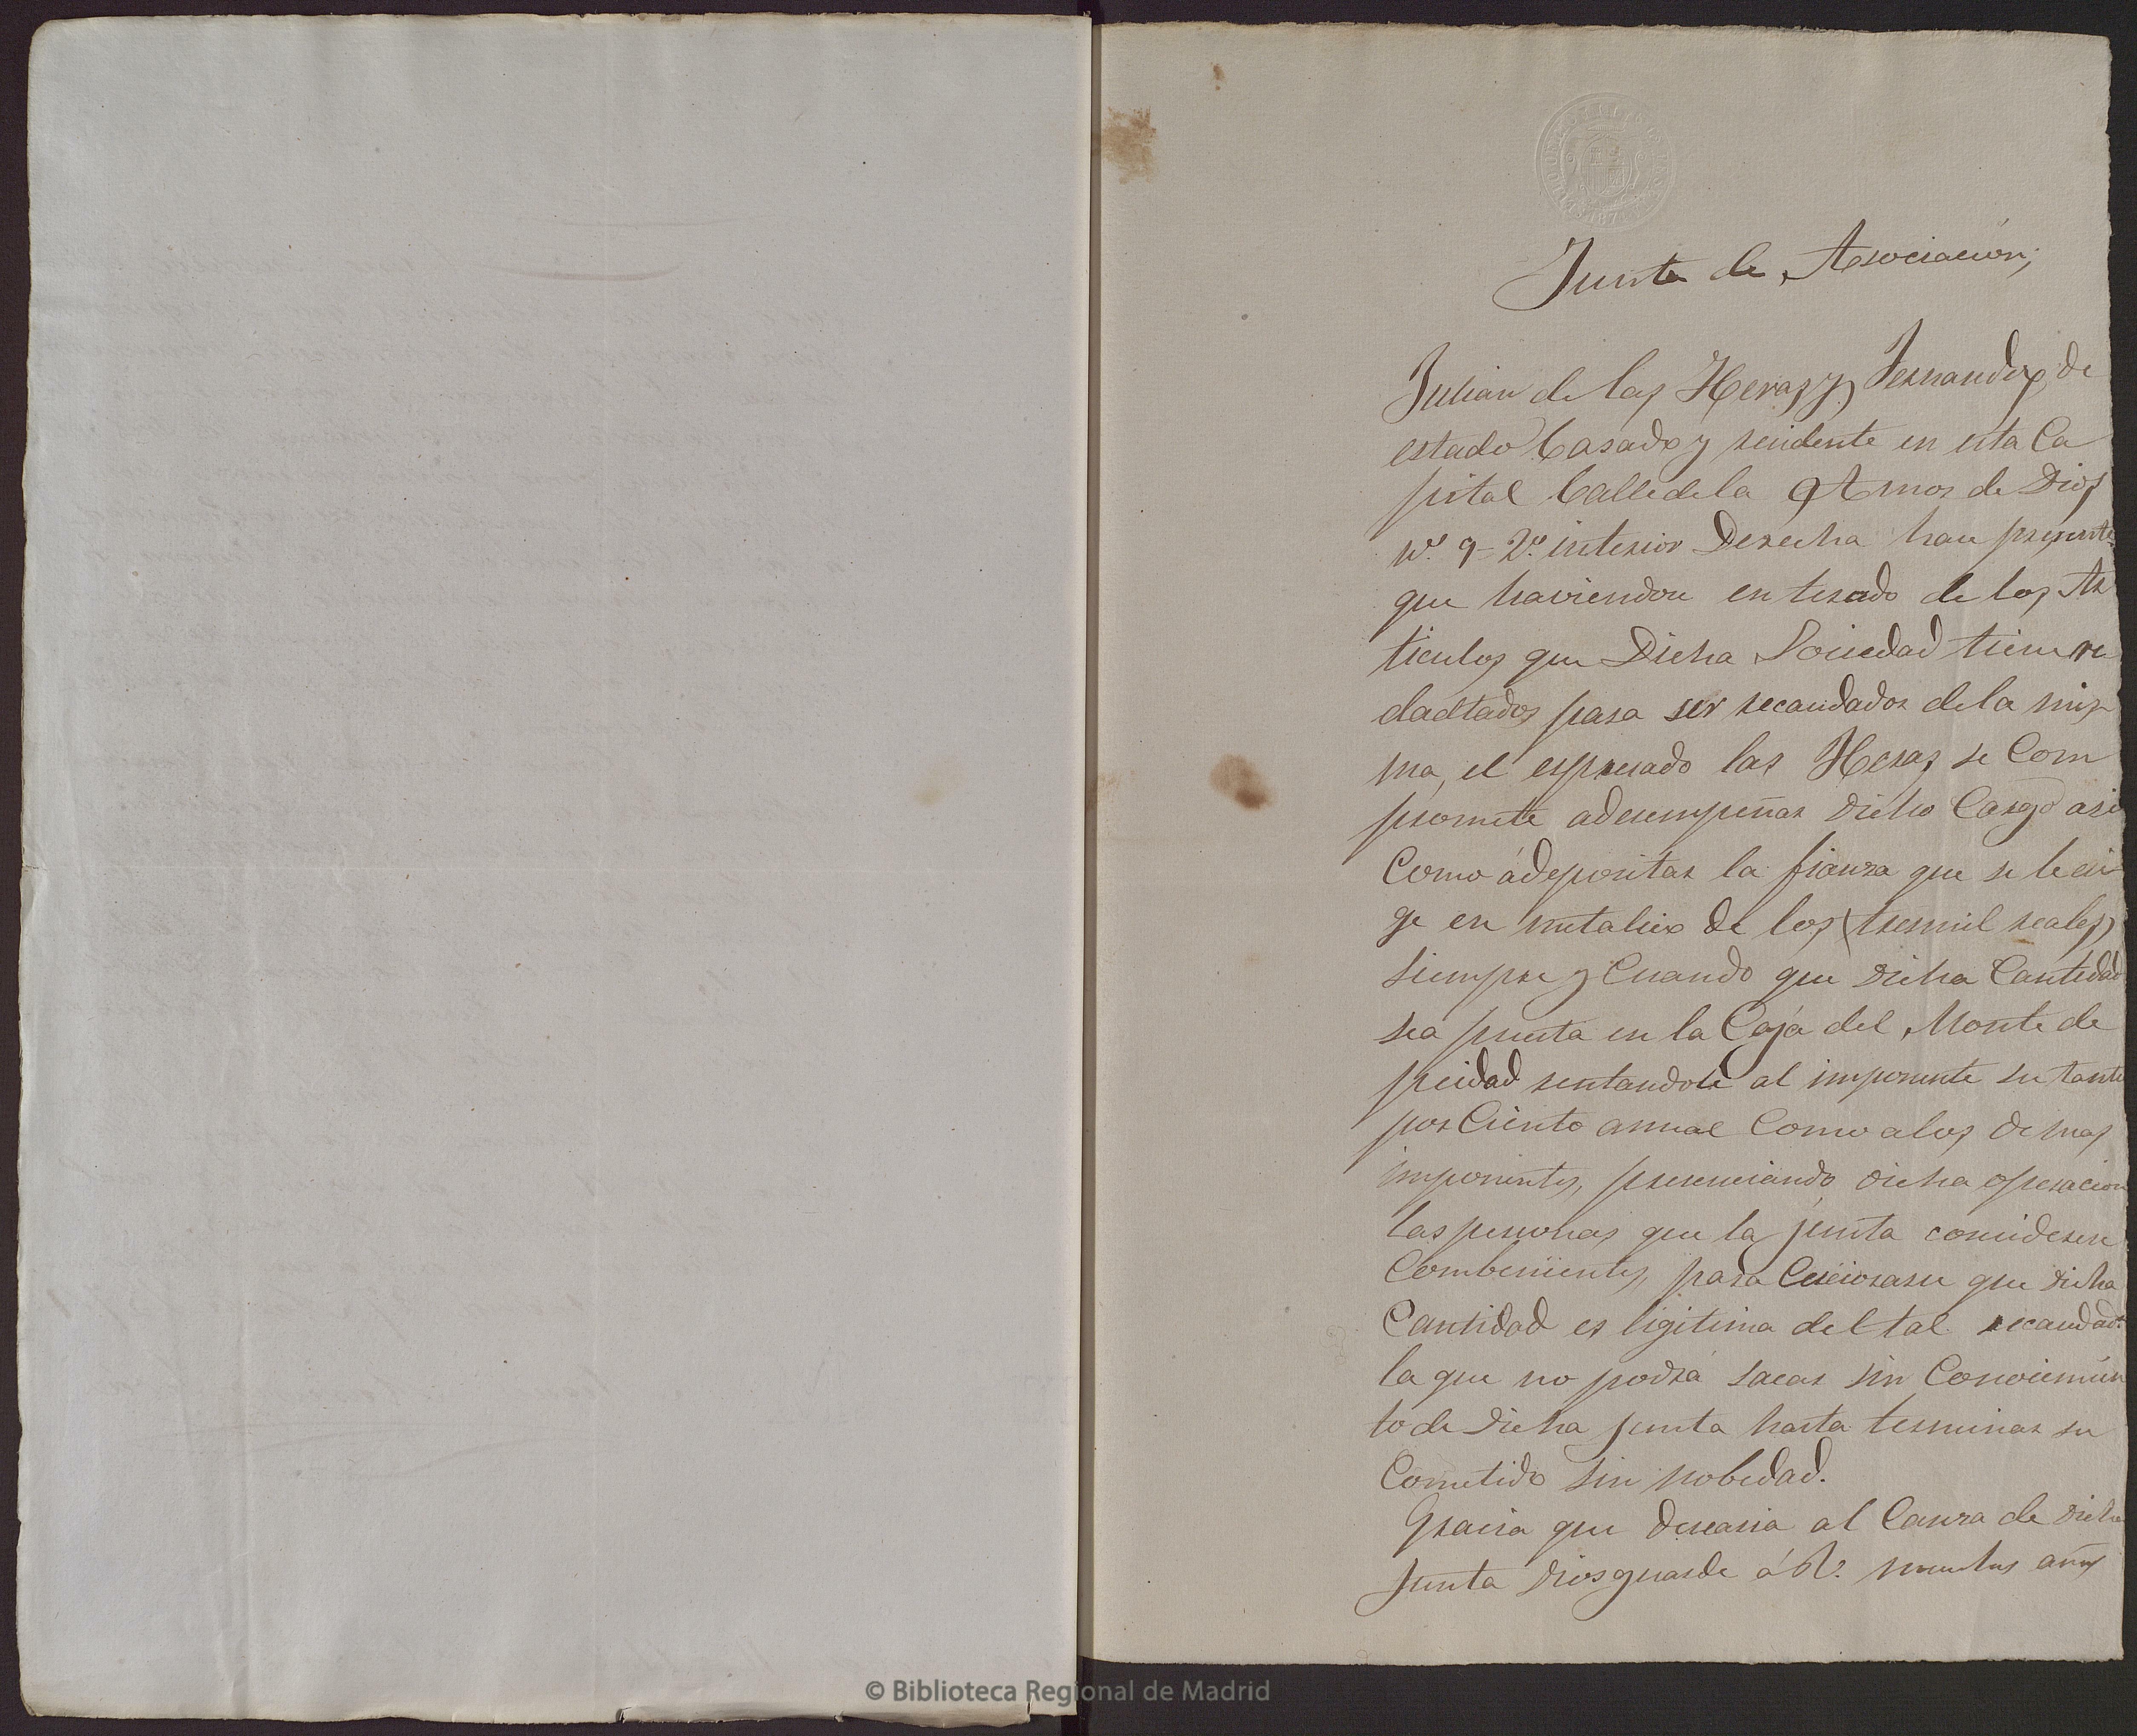 Junta de Asociación;
Julian de las Heras y Fernandez, de
estado Casado y residente en esta Ca
pital Calle de la Amor de Dios
nº. 9 = 2º. interior Derecha hace presente
que haviendose enterado de los Ar
ticulos que Dicha Sociedad tiene re
dactados para ser recaudador de la mis
ma, el espresado las Heras se Com
promete a desempeñar dicho Cargo asi
Como á depositar la fianza que se le exi
ge en metalico de los (tresmil reales)
siempre y Cuando que dicha Cantidad
sea puesta en la Caja del Monte de
pieidad rentandole al imponente su tanto
por Ciento anual Como a los demas
imponentes, presenciando dicha operacion
las personas que la junta considerere
Combenientes, para que dicha
Cantidad es ligitima del tal recaudador.
la que no podrá sacar sin Conocimien
to de dicha junta hasta terminar su
Cometido sin nobedad.
Gracia que desearia al Canza de dicha
Junta Dios guarde á V. muchos años
© Biblioteca Regional de Madrid